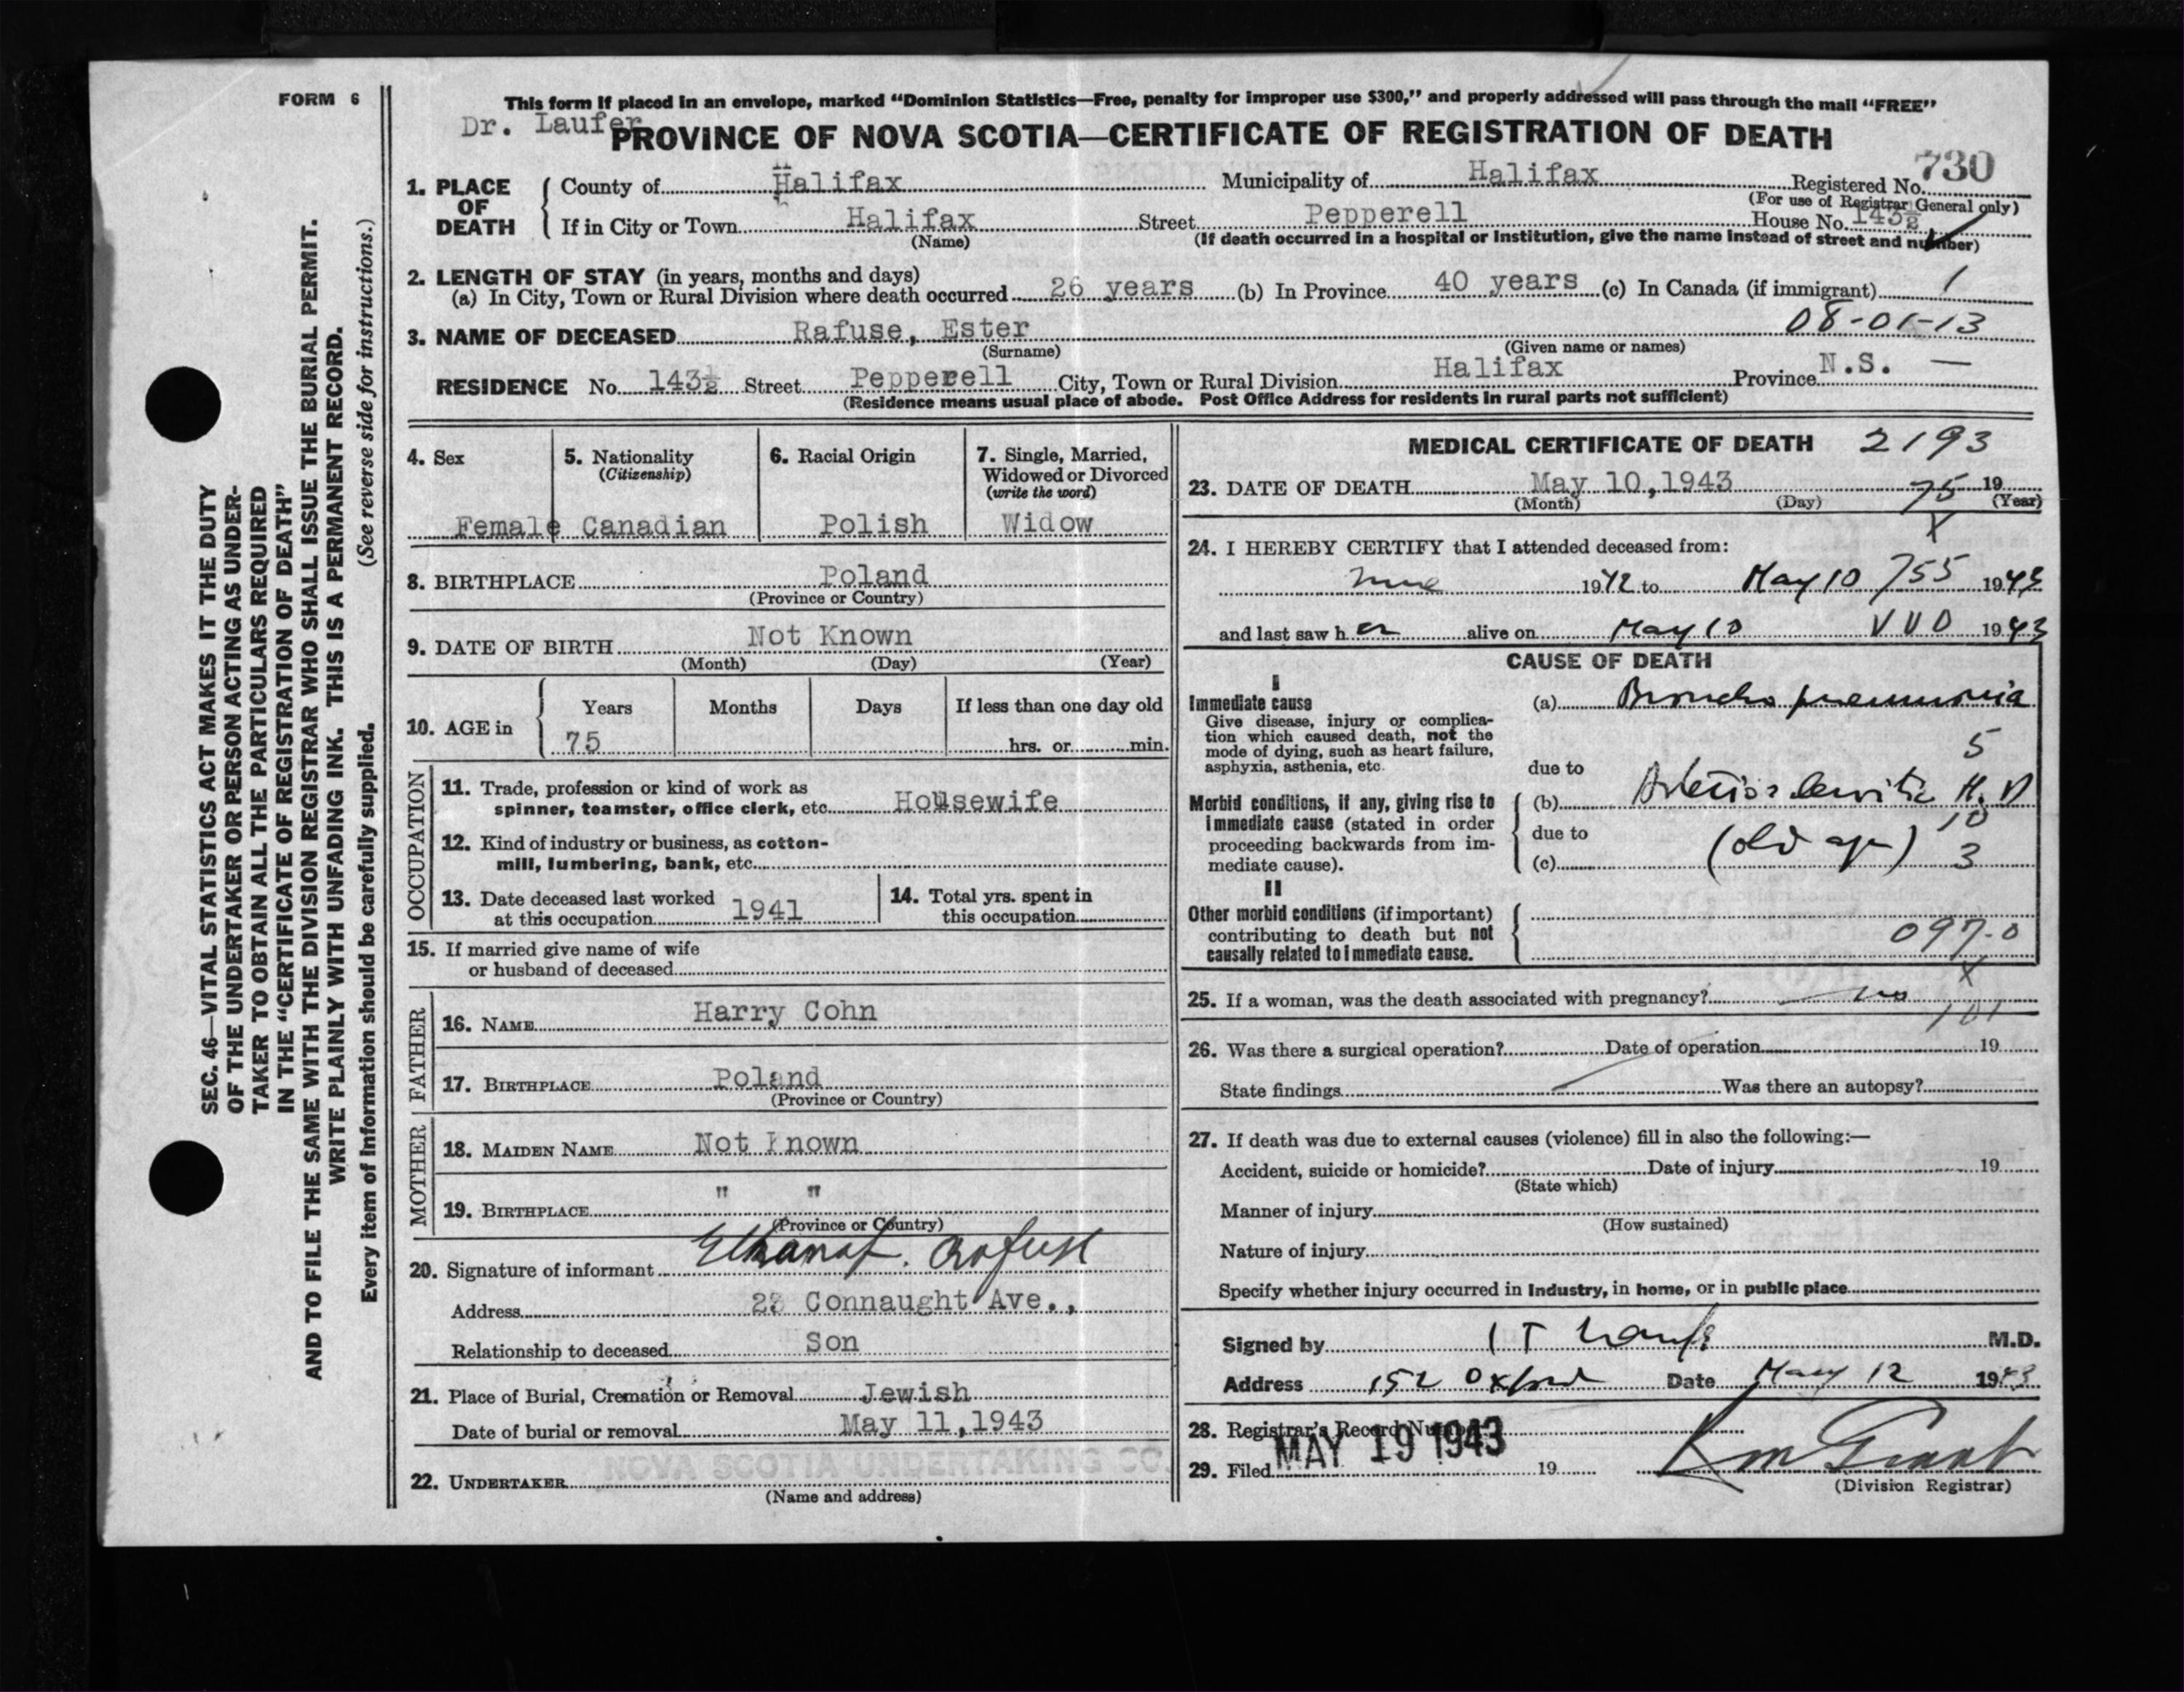 FORM 6
This form if placed in an envelope, marked “Dominion Statistics—Free, penalty for improper use $300,” and properly addressed will pass through the mail “FREE”
Dr. Laufer
PROVINCE OF NOVA SCOTIA—CERTIFICATE OF REGISTRATION OF DEATH
730
1. PLACE OF DEATH
County of Halifax Municipality of Halifax Registered No.
(For use of Registrar General only)
If in City or Town Halifax Street Pepperell House No. 143½
(Name) (If death occurred in a hospital or institution, give the name instead of street and number)
2. LENGTH OF STAY (in years, months and days)
(a) In City, Town or Rural Division where death occurred 26 years (b) In Province 40 years (c) In Canada (if immigrant) 1
08-01-13
3. NAME OF DECEASED Rafuse, Ester
(Surname) (Given name or names)
RESIDENCE No. 143½ Street Pepperell City, Town or Rural Division Halifax Province N.S. —
(Residence means usual place of abode. Post Office Address for residents in rural parts not sufficient)
4. Sex
Female
5. Nationality
(Citizenship)
Canadian
6. Racial Origin
Polish
7. Single, Married,
Widowed or Divorced
(write the word)
Widow
8. BIRTHPLACE Poland
(Province or Country)
9. DATE OF BIRTH Not Known
(Month) (Day) (Year)
10. AGE in
Years Months Days If less than one day old
75 hrs. or min.
OCCUPATION
11. Trade, profession or kind of work as
spinner, teamster, office clerk, etc. Housewife
12. Kind of industry or business, as cotton-
mill, lumbering, bank, etc.
13. Date deceased last worked
at this occupation 1941
14. Total yrs. spent in
this occupation
15. If married give name of wife
or husband of deceased
FATHER
16. NAME Harry Cohn
17. BIRTHPLACE Poland
(Province or Country)
MOTHER
18. MAIDEN NAME Not Known
19. BIRTHPLACE " "
(Province or Country)
20. Signature of informant
Address 23 Connaught Ave.,
Relationship to deceased Son
21. Place of Burial, Cremation or Removal Jewish
Date of burial or removal May 11, 1943
22. UNDERTAKER NOVA SCOTIA UNDERTAKING CO.
(Name and address)
MEDICAL CERTIFICATE OF DEATH 2193
23. DATE OF DEATH May 10, 1943 75 19
(Month) (Day) (Year)
X
24. I HEREBY CERTIFY that I attended deceased from:
June 1942 to May 10 755 1943
and last saw h er alive on May 10 VUO 1943
CAUSE OF DEATH
I
Immediate cause
Give disease, injury or complica-
tion which caused death, not the
mode of dying, such as heart failure,
asphyxia, asthenia, etc.
(a) Broncho pneumonia
5
due to
Morbid conditions, if any, giving rise to
immediate cause (stated in order
proceeding backwards from im-
mediate cause).
(b) H. D
10
due to
(c) (old age) 3
II
Other morbid conditions (if important)
contributing to death but not
causally related to immediate cause.
097-0
X
25. If a woman, was the death associated with pregnancy? no
101
26. Was there a surgical operation? Date of operation 19
State findings Was there an autopsy?
27. If death was due to external causes (violence) fill in also the following:—
Accident, suicide or homicide? Date of injury 19
(State which)
Manner of injury
(How sustained)
Nature of injury
Specify whether injury occurred in industry, in home, or in public place
Signed by M.D.
Address 152 Oxford Date May 12 1943
28. Registrar's Record Number
29. Filed MAY 19 1943 19
(Division Registrar)
SEC. 46—VITAL STATISTICS ACT MAKES IT THE DUTY
OF THE UNDERTAKER OR PERSON ACTING AS UNDER-
TAKER TO OBTAIN ALL THE PARTICULARS REQUIRED
IN THE “CERTIFICATE OF REGISTRATION OF DEATH”
AND TO FILE THE SAME WITH THE DIVISION REGISTRAR WHO SHALL ISSUE THE BURIAL PERMIT.
WRITE PLAINLY WITH UNFADING INK. THIS IS A PERMANENT RECORD.
Every item of information should be carefully supplied. (See reverse side for instructions.)